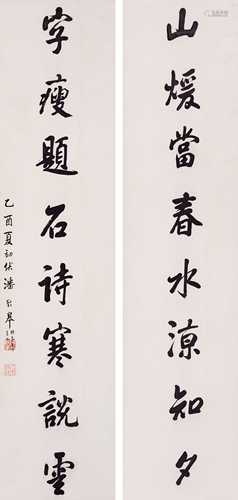 山煖當春水涼知夕
字瘦題石詩寒說雲
乙酉夏初伏潘齡皋